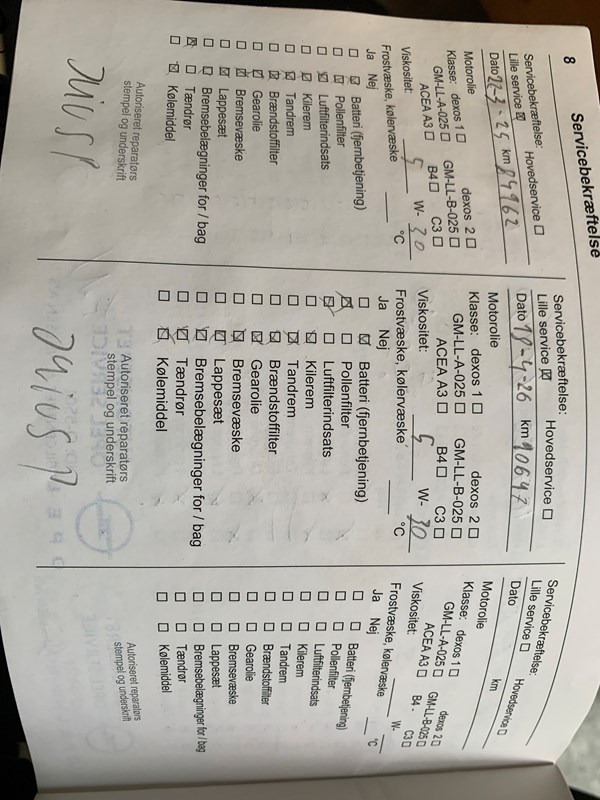 8
Servicebekræftelse
Servicebekræftelse:
Lille service ☒ Hovedservice ☐
Dato 22-3-25 km 84962
Motorolie
Klasse: dexos 1 ☐ dexos 2 ☐
GM-LL-A-025 ☐ GM-LL-B-025 ☐
ACEA A3 ☐ B4 ☐ C3 ☐
Viskositet: 5 W- 30
Frostvæske, kølervæske °C
Ja Nej
☐ ☒ Batteri (fjernbetjening)
☐ ☒ Pollenfilter
☐ ☒ Luftfilterindsats
☐ ☒ Kilerem
☐ ☒ Tandrem
☐ ☒ Brændstoffilter
☐ ☒ Gearolie
☐ ☒ Bremsevæske
☐ ☒ Lappesæt
☐ ☐ Bremsebelægninger for / bag
☒ ☐ Tændrør
☐ ☒ Kølemiddel
Autoriseret reparatørs
stempel og underskrift
Servicebekræftelse:
Lille service ☒ Hovedservice ☐
Dato 18-4-26 km 90647
Motorolie
Klasse: dexos 1 ☐ dexos 2 ☐
GM-LL-A-025 ☐ GM-LL-B-025 ☐
ACEA A3 ☐ B4 ☐ C3 ☐
Viskositet: 5 W- 30
Frostvæske, kølervæske °C
Ja Nej
☐ ☒ Batteri (fjernbetjening)
☒ ☐ Pollenfilter
☒ ☐ Luftfilterindsats
☐ ☒ Kilerem
☐ ☒ Tandrem
☐ ☒ Brændstoffilter
☐ ☒ Gearolie
☐ ☒ Bremsevæske
☐ ☒ Lappesæt
☐ ☒ Bremsebelægninger for / bag
☐ ☒ Tændrør
☐ ☒ Kølemiddel
Autoriseret reparatørs
stempel og underskrift
Servicebekræftelse:
Lille service ☐ Hovedservice ☐
Dato km
Motorolie
Klasse: dexos 1 ☐ dexos 2 ☐
GM-LL-A-025 ☐ GM-LL-B-025 ☐
ACEA A3 ☐ B4 - C3 ☐
Viskositet: W-
Frostvæske, kølervæske °C
Ja Nej
☐ ☐ Batteri (fjernbetjening)
☐ ☐ Pollenfilter
☐ ☐ Luftfilterindsats
☐ ☐ Kilerem
☐ ☐ Tandrem
☐ ☐ Brændstoffilter
☐ ☐ Gearolie
☐ ☐ Bremsevæske
☐ ☐ Lappesæt
☐ ☐ Bremsebelægninger for / bag
☐ ☐ Tændrør
☐ ☐ Kølemiddel
Autoriseret reparatørs
stempel og underskrift